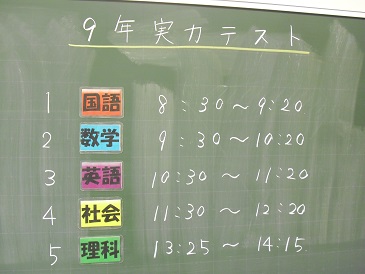 9年実力テスト
1 国語 8:30～9:20
2 数学 9:30～10:20
3 英語 10:30～11:20
4 社会 11:30～12:20
5 理科 13:25～14:15